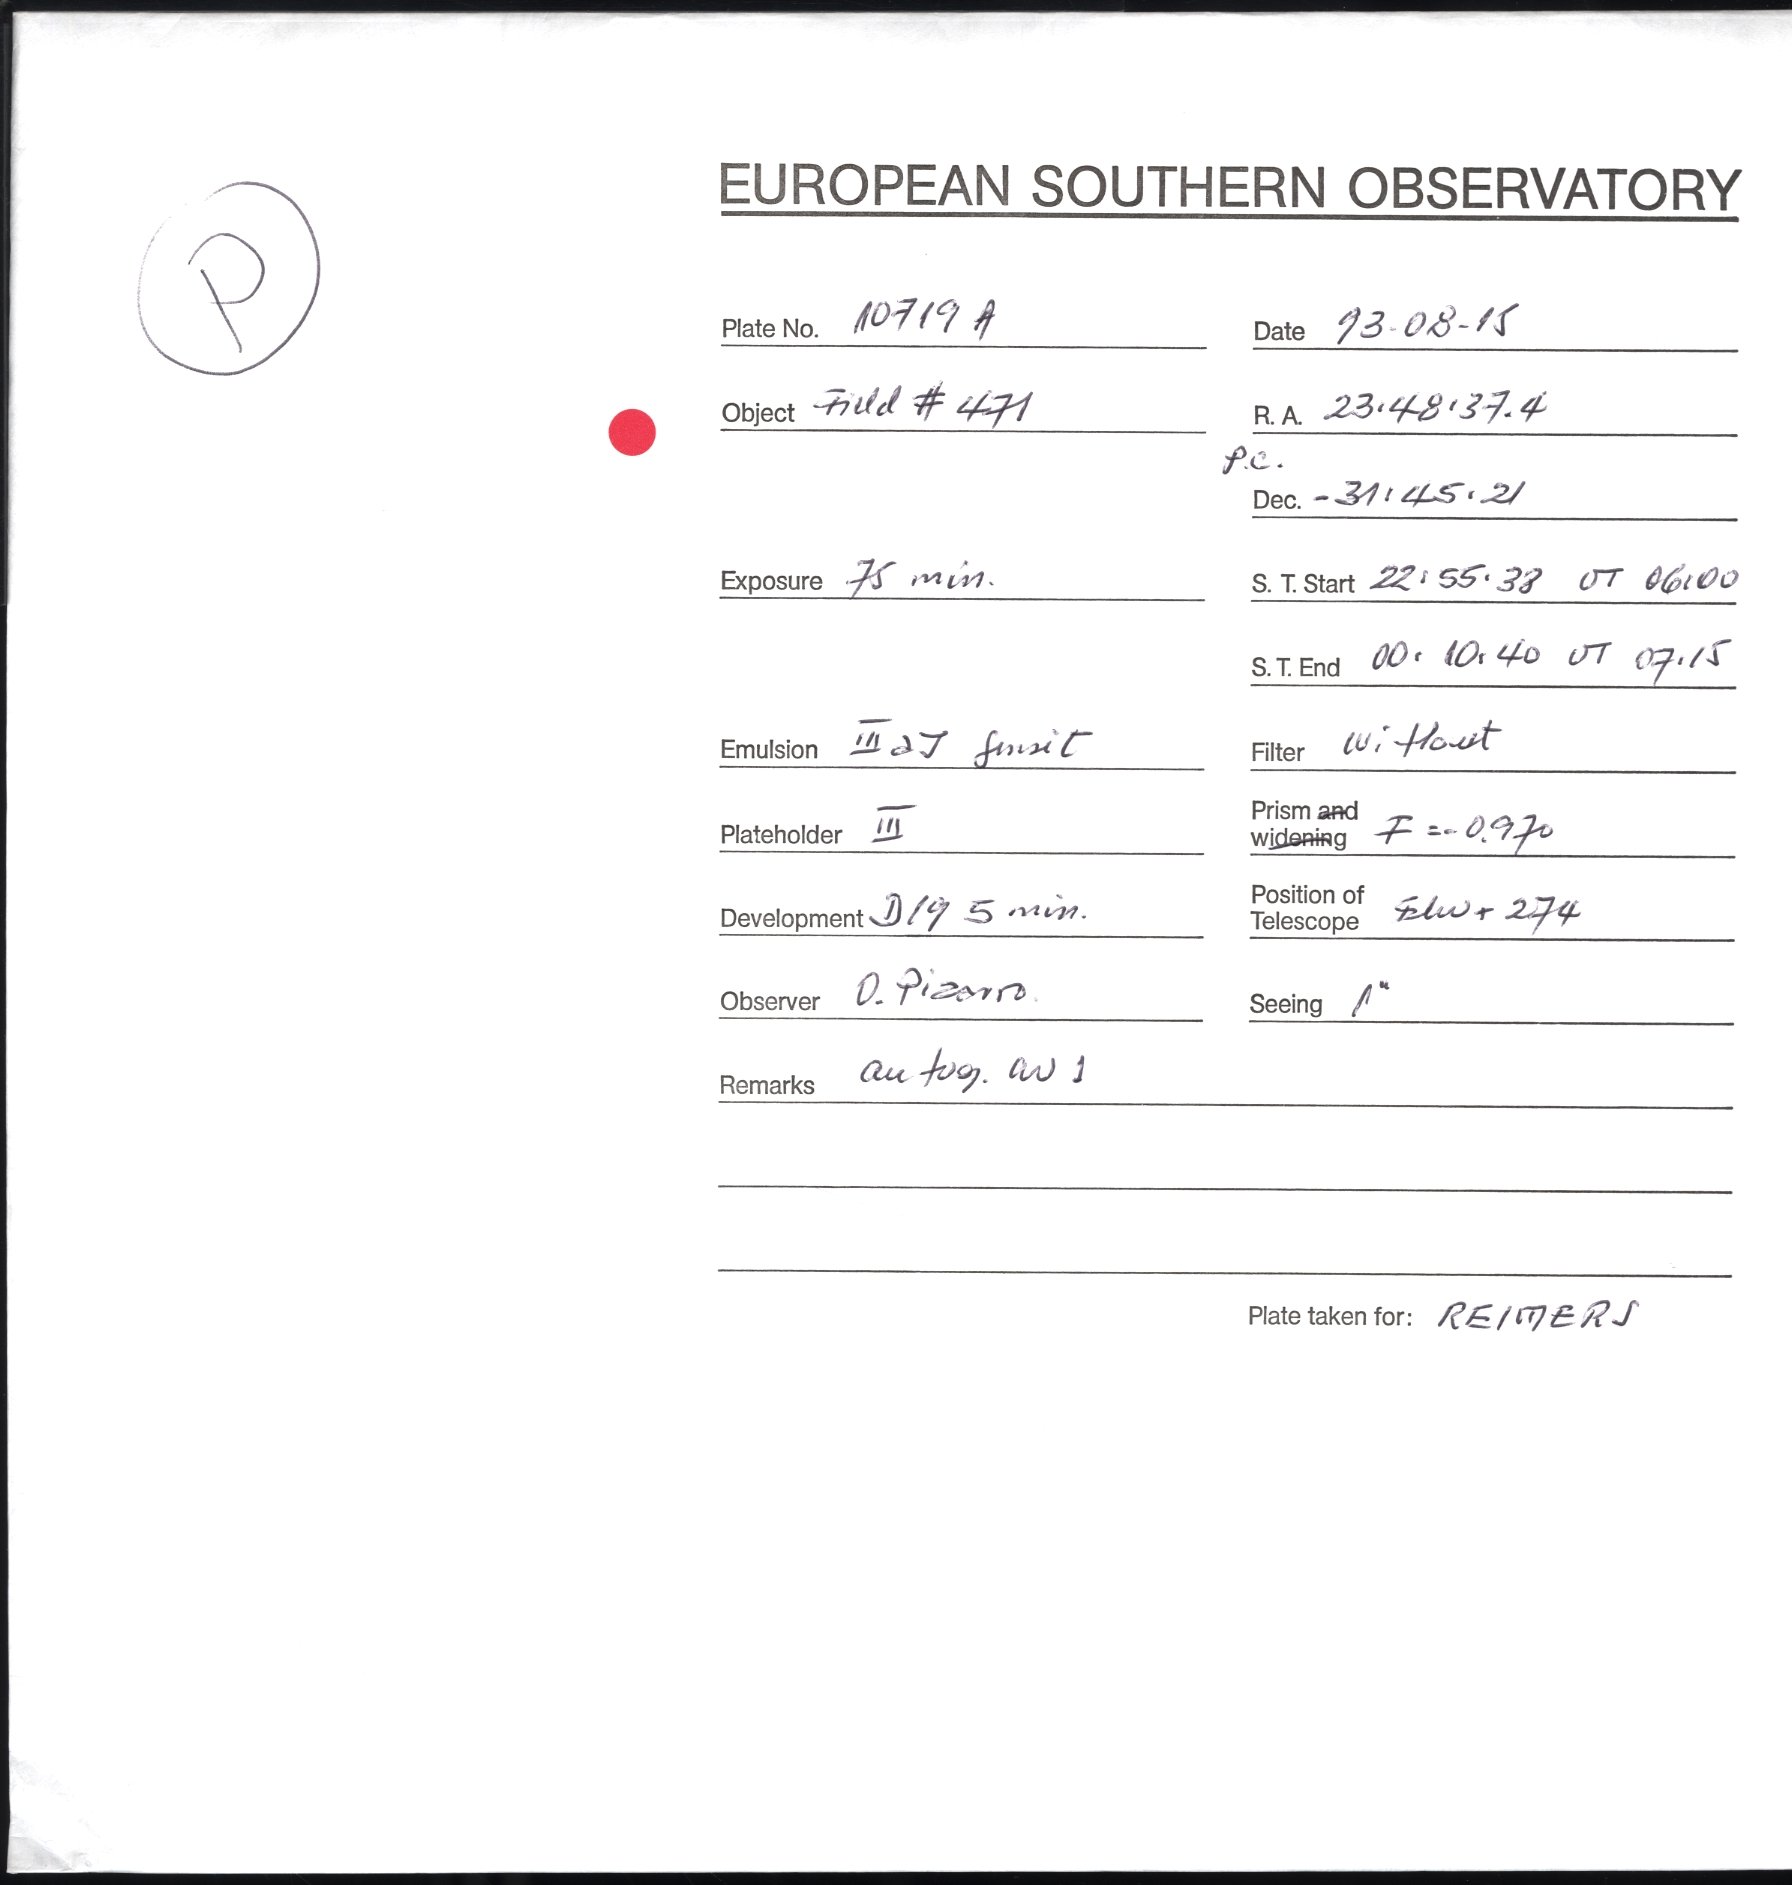 P
EUROPEAN SOUTHERN OBSERVATORY
Plate No. 10719 A Date 93-08-15
Object Field # 471 R. A. 23:48:37.4
P.C.
Dec. -31:45:21
Exposure 75 min. S. T. Start 22:55:38 UT 06:00
S. T. End 00:10:40 UT 07:15
Emulsion III aJ Filter without
Plateholder III Prism and widening F = -0.970
Development D19 5 min. Position of Telescope + 274
Observer O. Pizarro. Seeing 1"
Remarks autog. 1
Plate taken for: REIMERS